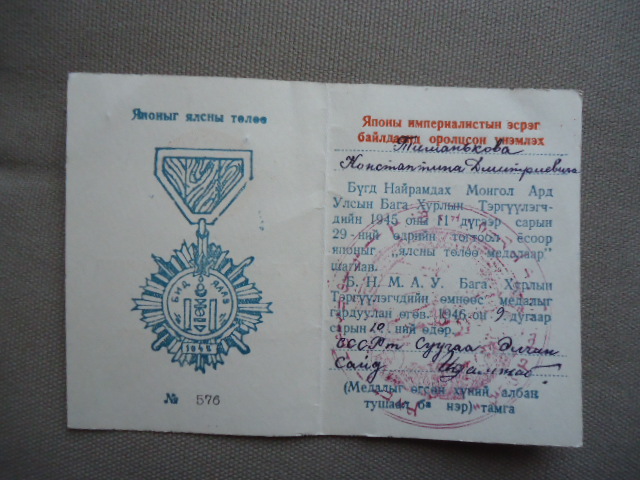 Японыг ялсны төлөө
БИД ЯЛАВ
1945
№ 576
Японы империалистын эсрэг
байлдаанд оролцсон үнэмлэх
Тиманькова
Константина Дмитриевича
Бүгд Найрамдах Монгол Ард
Улсын Бага Хурлын Тэргүүлэгч-
дийн 1945 оны 11 дүгээр сарын
29-ний өдрийн тогтоол ёсоор
японыг „ялсны төлөө медалаар"
шагнав.
Б. Н. М. А. У. Бага Хурлын
Тэргүүлэгчдийн өмнөөс медалыг
гардуулан өгөв. 1946 он 9 дугаар
сарын 19 ний өдөр.
СССР-т Суугаа Элчин
Сайд
(Медалыг өгсөн хүний албан
тушаал ба нэр) тамга